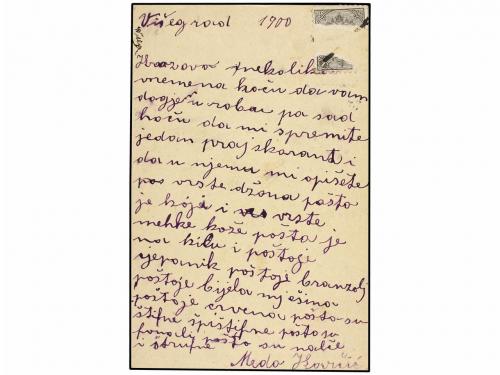 Višegrad 1900
nekoliko
vremena hoću da vam
dogjem u robu pa sad
hoću da mi spremite
jedan prajskorant i
da u njemu mi opišete
pos vrste džona pošto
je koja i vrste
mehke kože pošta je
na kilu i poštoje
yepanik poštoje branzolj
poštoje bijela mješina
poštoje crvena pošto su
štifne špištifne pošto su
pošto su nalče
i štrufne
Meda